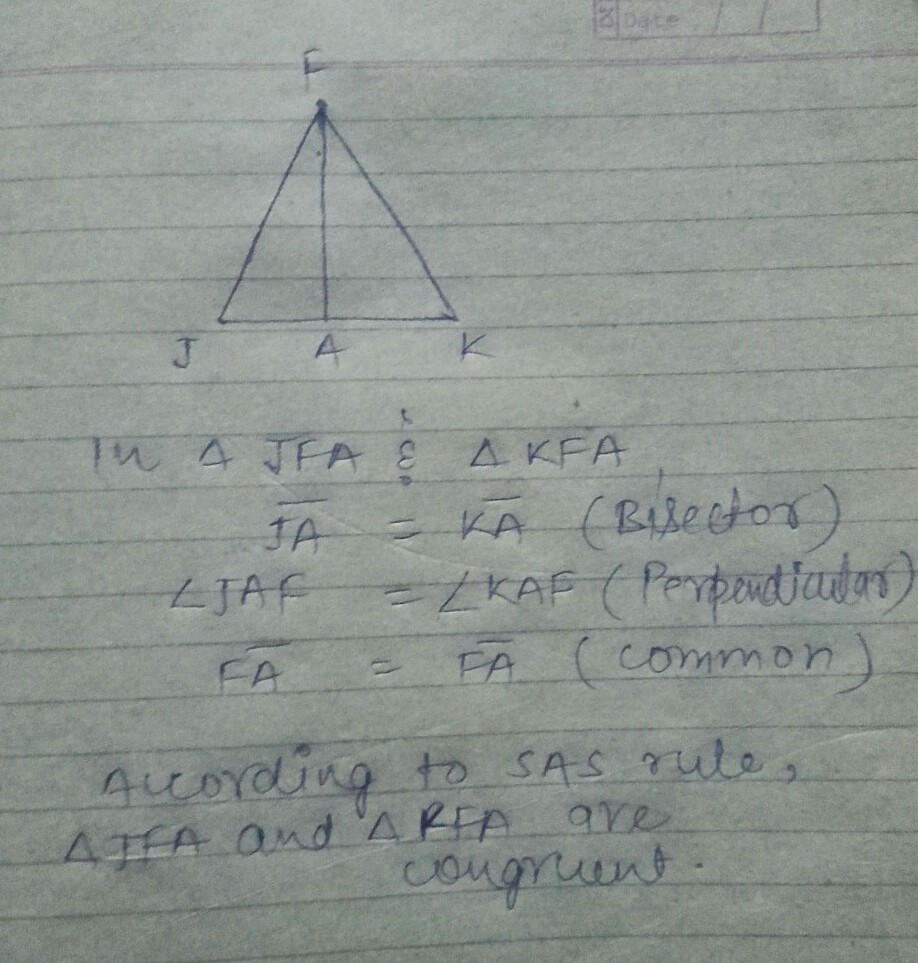 Date / /
F
J A K
In Δ JFA & Δ KFA
J̅A̅ = K̅A̅ (Bisector)
∠JAF = ∠KAF (Perpendicular)
F̅A̅ = F̅A̅ (common)
According to SAS rule,
Δ JFA and Δ KFA are
congruent.